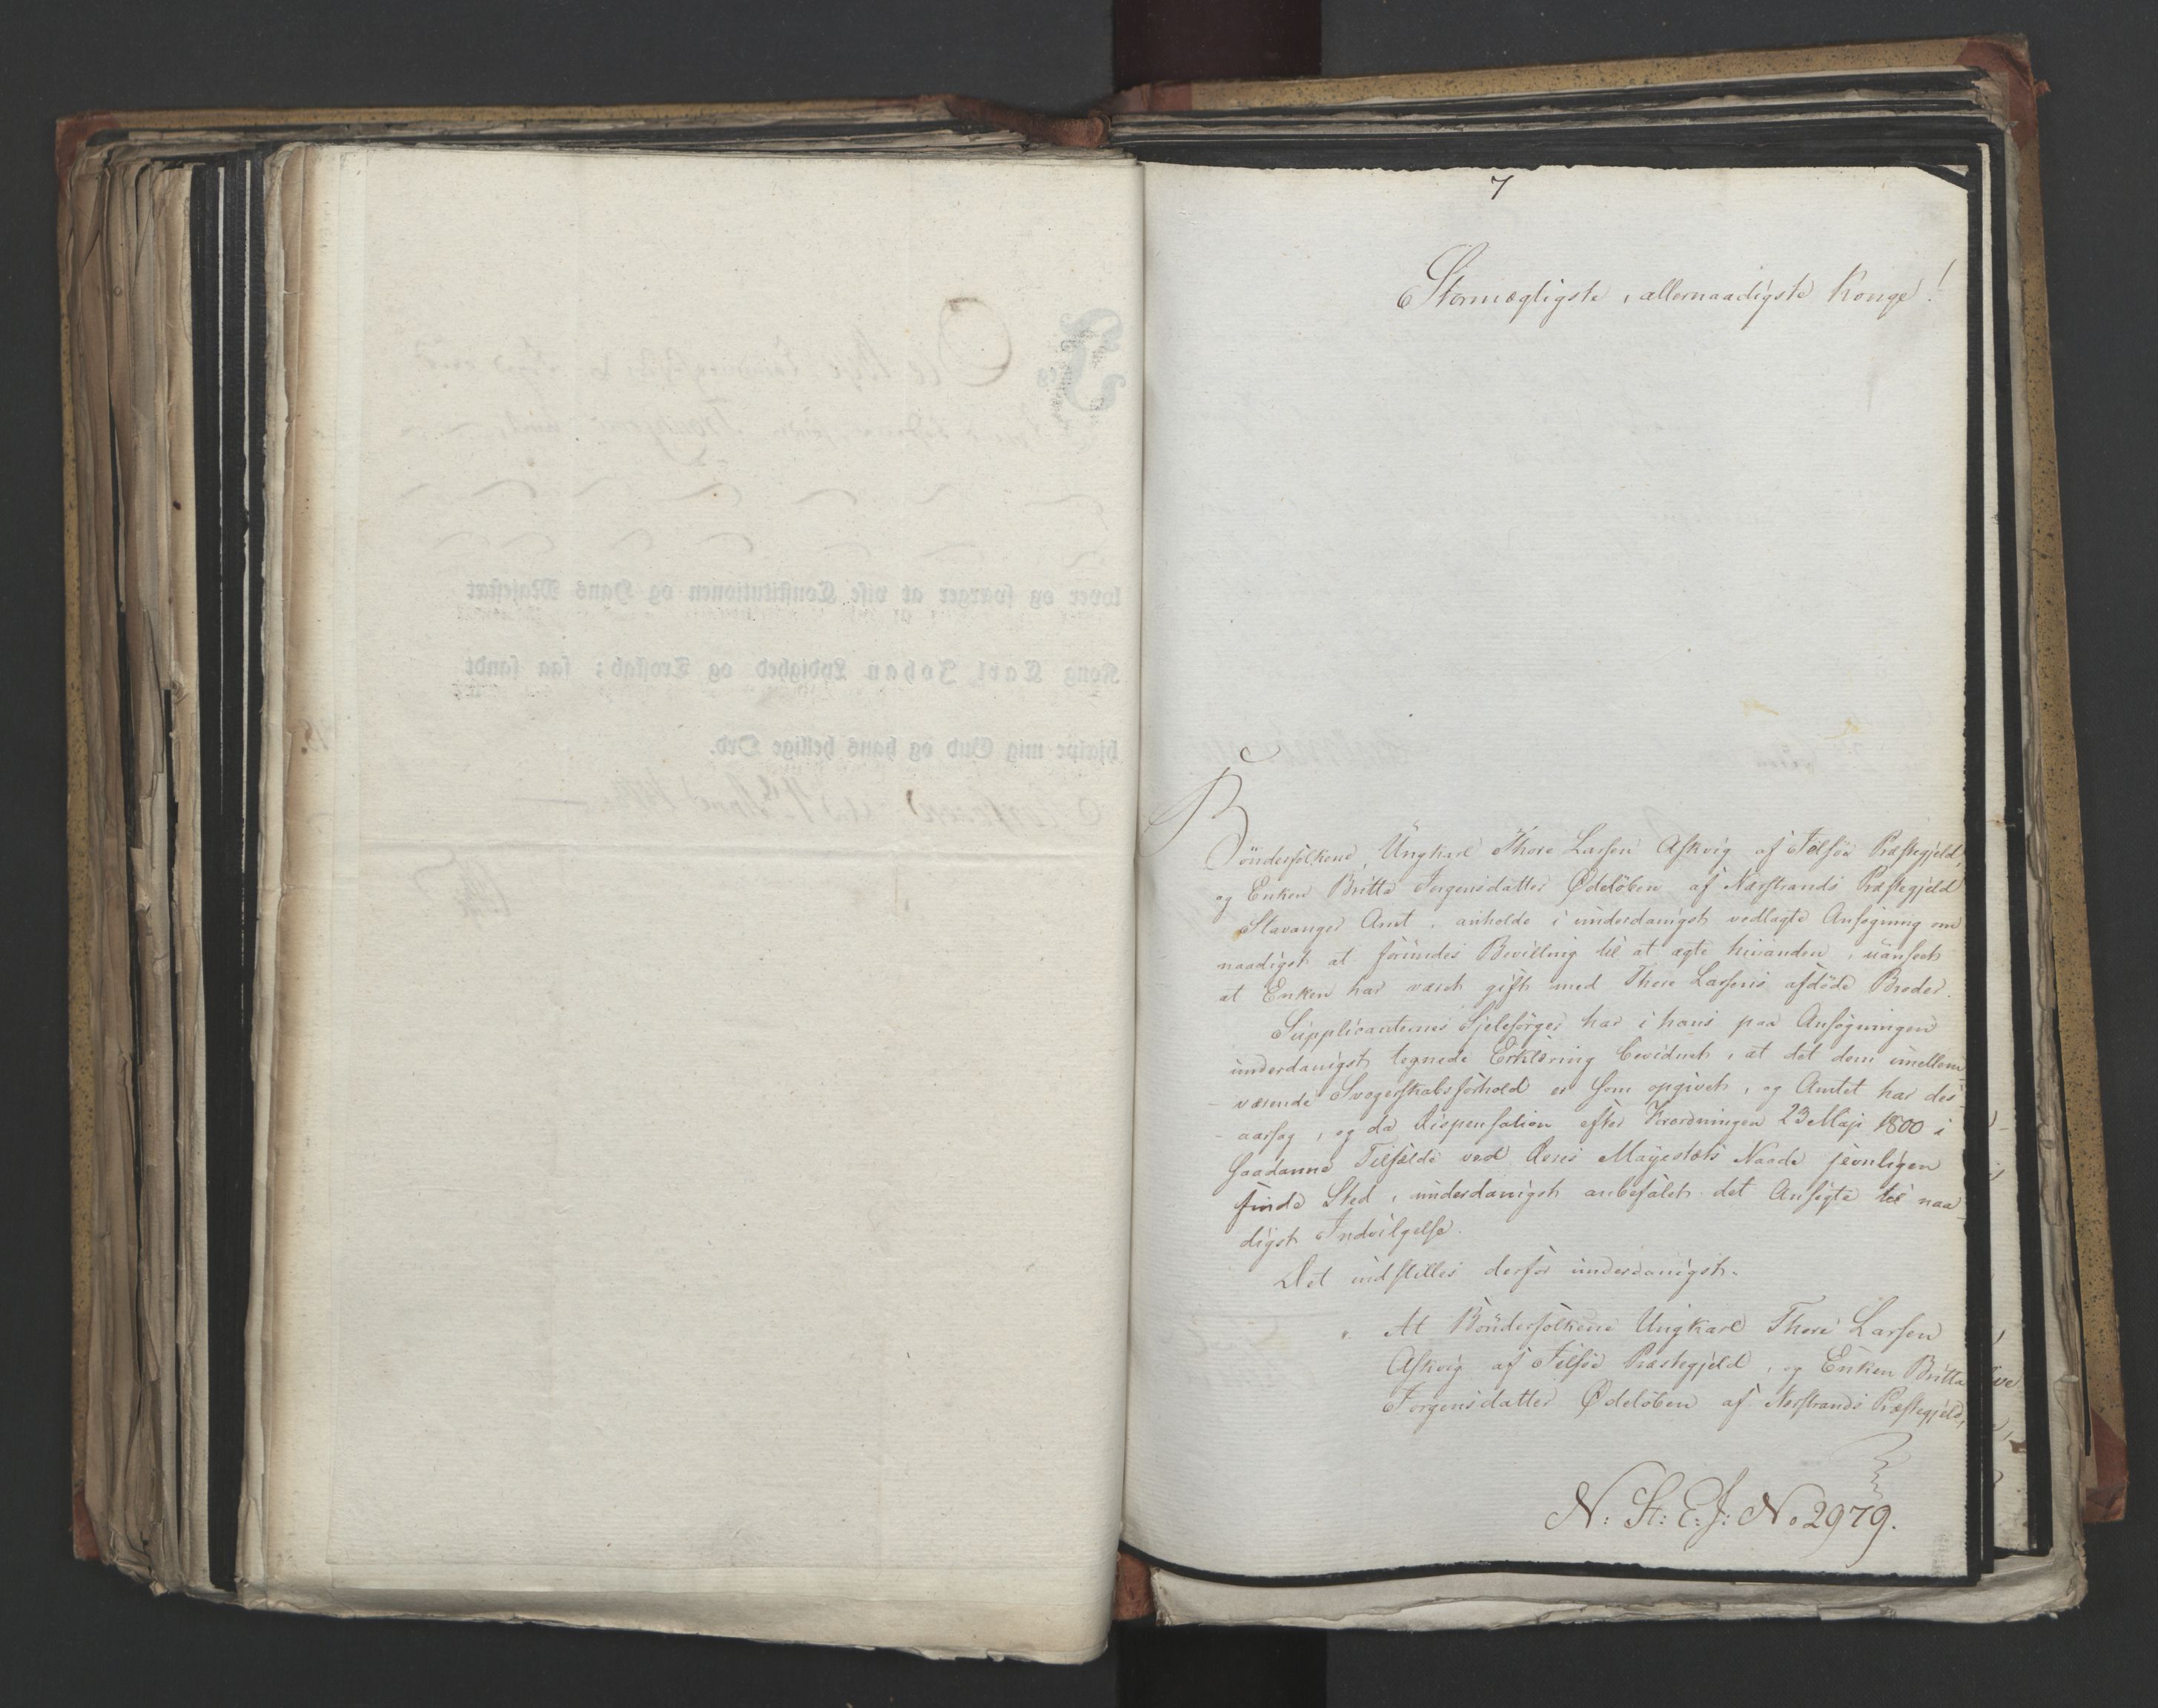 7
Stormægtigste, allernaadigste Konge!
Bönderfolkene, Ungkarl Thore Larsen Askvig af Jelsöe Præstegjeld,
og Enken Britta Jorgensdatter Ødelöben af Nærstrands Præstegjeld
Stavanger Amt, anholde i underdanigst vedlagte Ansøgning om
naadigst at forundes Bevilling til at ægte hinanden, uanseet
at Enken har været gift med Thore Larsens afdöde Broder.
Supplicanternes Sjelesörger har i hans paa Ansögningen
underdanigst tegnede Erklæring bevidnet, at det dem imellem
værende Svogerskabsforhold er som opgivet, og Amtet har des
aarsag, og da Dispensation efter Forordningen 23 Maji 1800 i
saadanne Tilfælde ved Deres Majestæts Naade jevnligen
finde Sted, underdanigst anbefalet det Ansögte til naa-
digst Indvilgelse.
Det indstilles derfor underdanigst.
" At Bönderfolkene Ungkarl Thore Larsen
Askvig af Jelsöe Præstegjeld, og Enken Britta
Jorgensdatter Ødelöben af Nerstrands Præstegjeld,
N: St: E: J: No 2979.